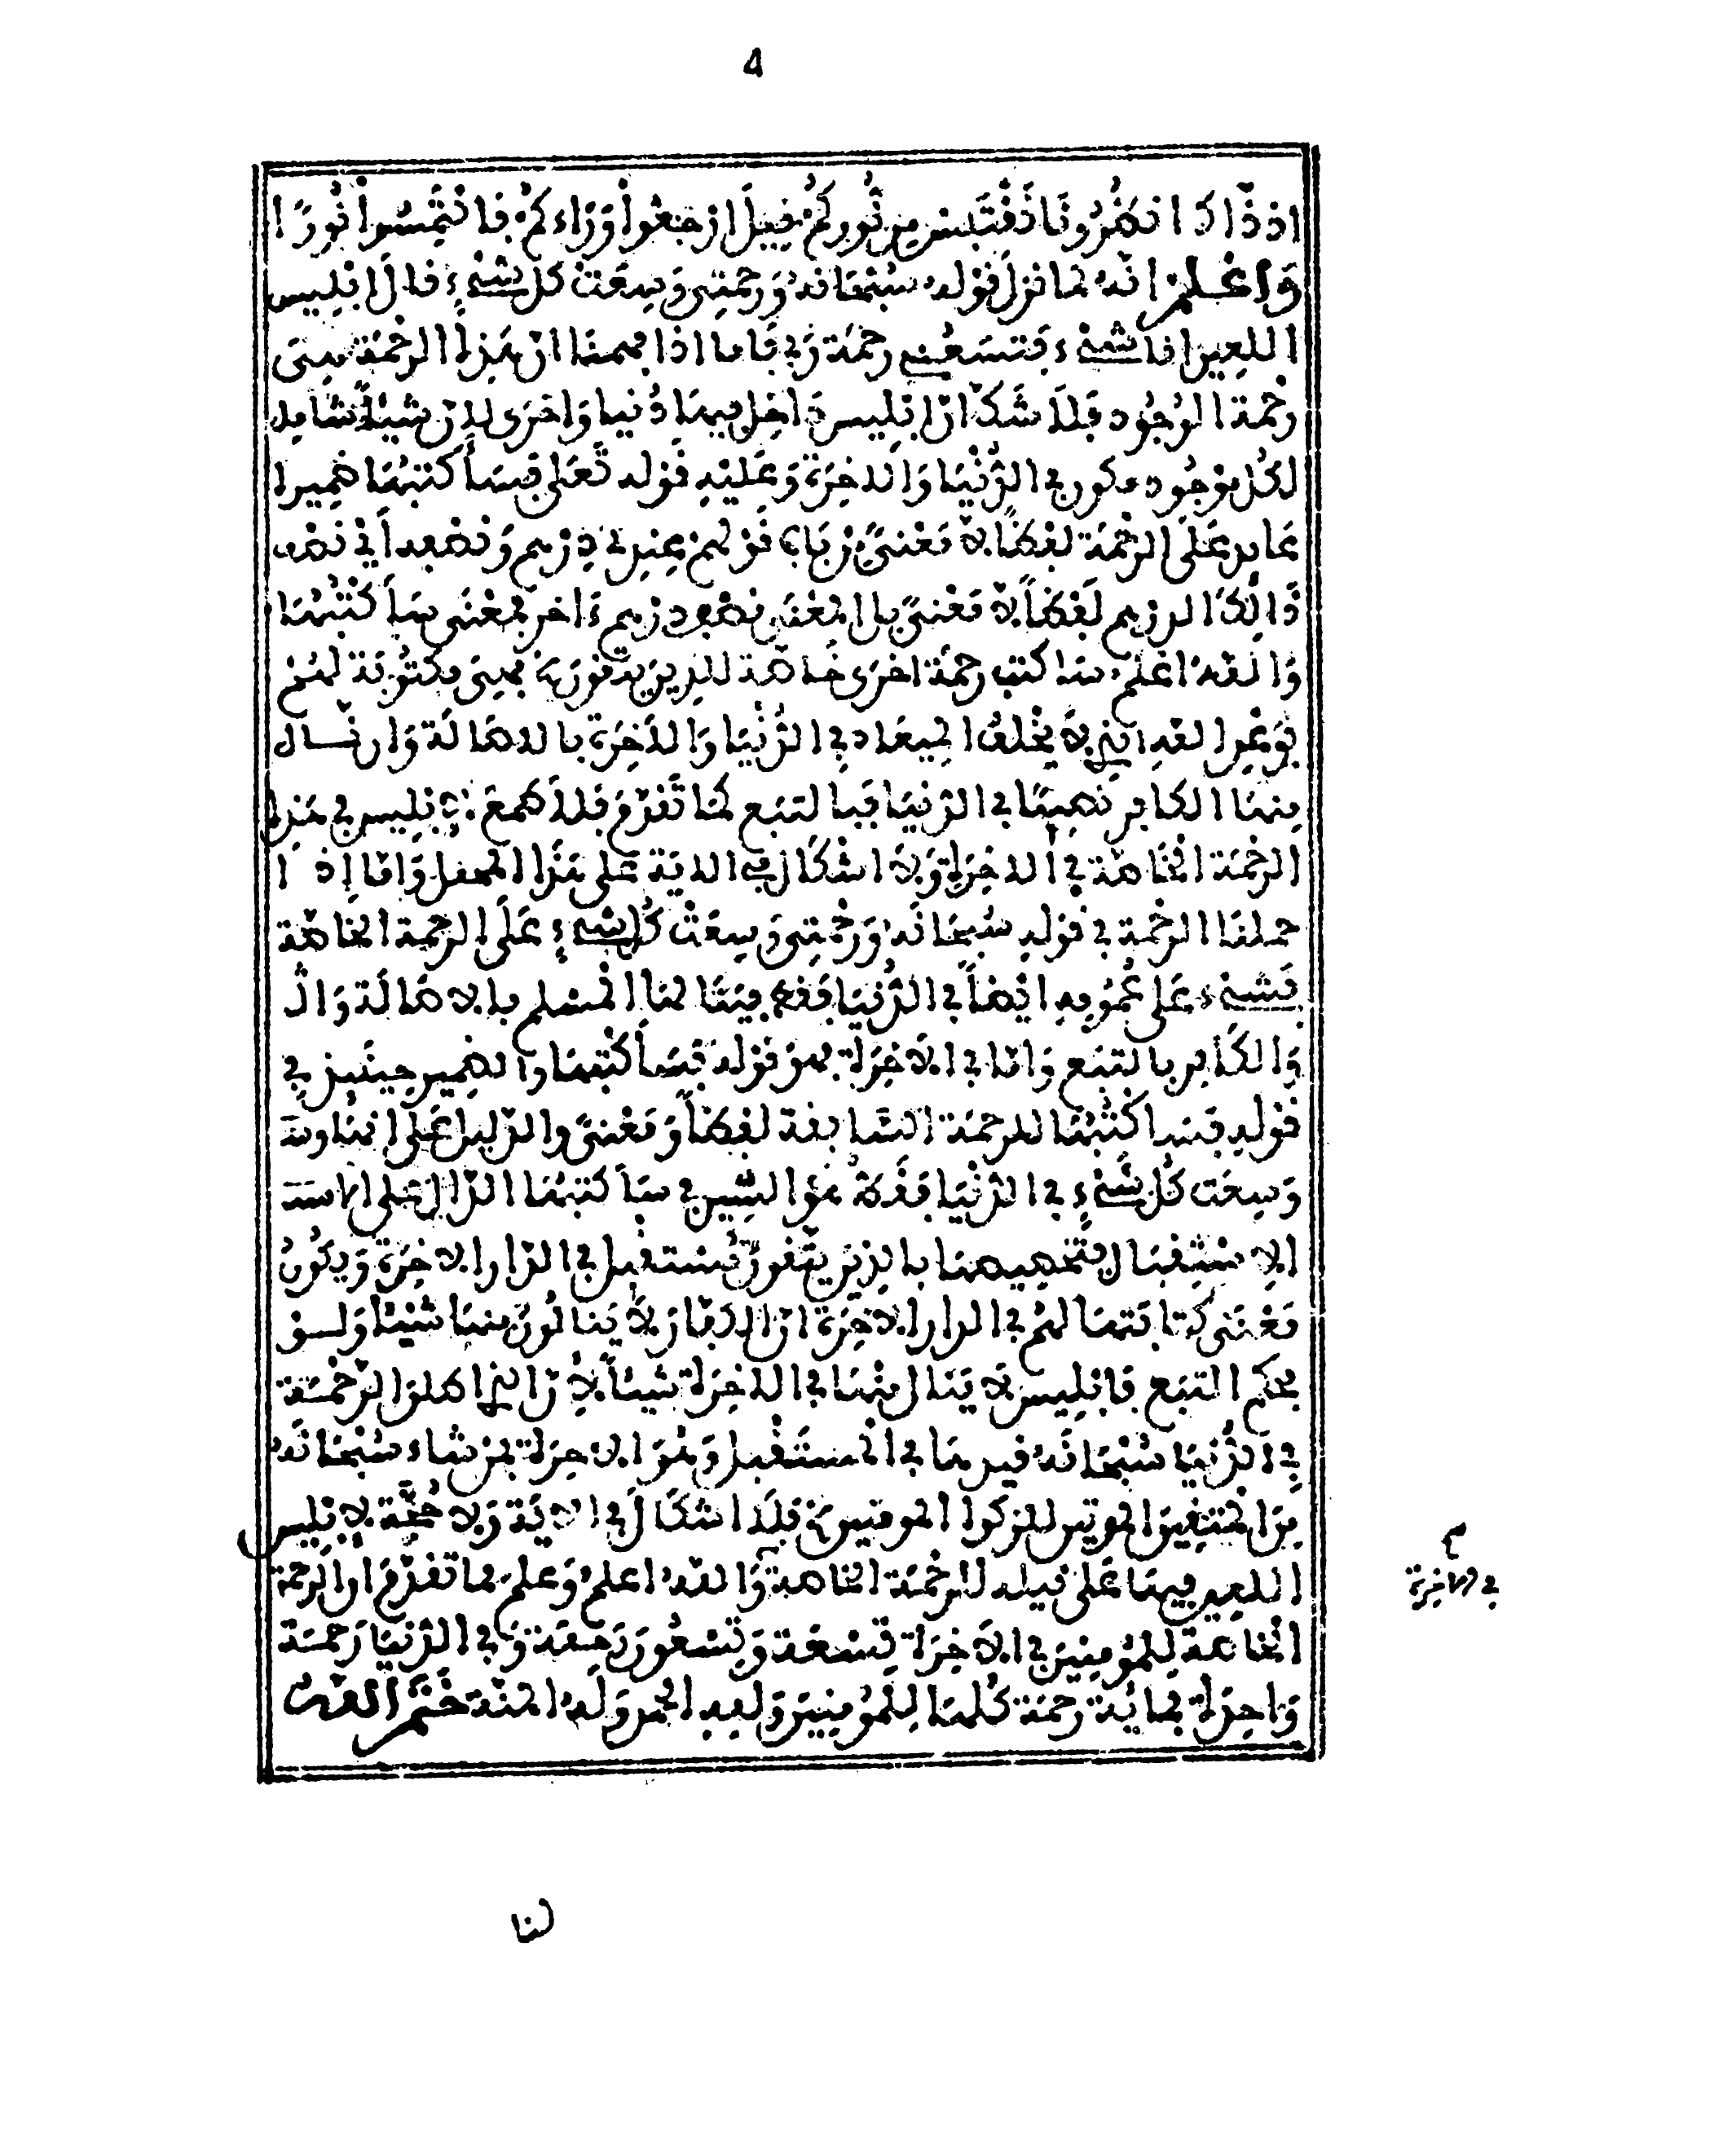 4
اذ ذاك انظرونا نقتبس من نوركم قيل ارجعوا وراءكم فالتمسوا نورا
واعلم انه لما نزل قوله سبحانه ورحمتي وسعت كل شيء قال ابليس
اللعين انا شيء فتسعني رحمة ربي فاما اذا فهمنا ان هذه الرحمة هي
رحمة الوجود فلا شك ان ابليس داخل فيها دنيا واخرى لان شيئا شامل
لكل موجود مكون في الدنيا والاخرة وعليه قوله تعلى فسأكتبها ضميرا
عايد على الرحمة لفظا لا معنى من باب قولهم عندي درهم ونصفه اي نصف
ذالك الدرهم لفظا لا معنى بل المعنى نصف درهم ءاخر فمعنى سأكتبها
والله اعلم سأكتب رحمة اخرى خاصة للذين يتقون فهي مكتوبة لهم
بوعد الله الذي لا يخلف الميعاد في الدنيا والاخرة بالاصالة وان نال
منها الكافر نصيبا في الدنيا فبالتبع كما تقدم فلا طمع لابليس في هذه
الرحمة الخاصة في الاخرة ولا اشكال في الاية على هذا المحمل واما اذا
حملنا الرحمة في قوله سبحانه ورحمتي وسعت كل شيء على الرحمة الخاصة
فشيء على عمومه ايضا في الدنيا فقط لما المسلم بالاصالة وال
والكافر بالتبع واما في الاخرة فهو قوله فسأكتبها والضمير حينئذ في
قوله فسأكتبها للرحمة السابقة لفظا ومعنى والدليل على انها وس
وسعت كل شيء في الدنيا فقط هو السين في سأكتبها الدال على الاست
الاستقبال فتخصيصها بالذين يتقون مستقبل في الدار الاخرة ويكون
معنى كتابتها لهم في الدار الاخرة ان الكفار لا ينالون منها شيئا ولو
بحكم التبع فابليس لا ينال منها في الاخرة شيئا لان الذي اطلق الرحمة
في الدنيا سبحانه قيدها في المستقبل وهو الاخرة بمن شاء سبحانه
من المتقين الموتين للزكوا الموقنين فلا اشكال في الاية ولا حجة لابليس
اللعين فيها على نيله للرحمة الخاصة والله اعلم وعلم مما تقدم ان الرحمة
الخاصة للمؤمنين في الاخرة تسعة وتسعون رحمة وفي الدنيا رحمة
واحدة فمائة رحمة كلها للمؤمنين ولله الحمد وله المنة ختم الله
في الاخرة
لنا